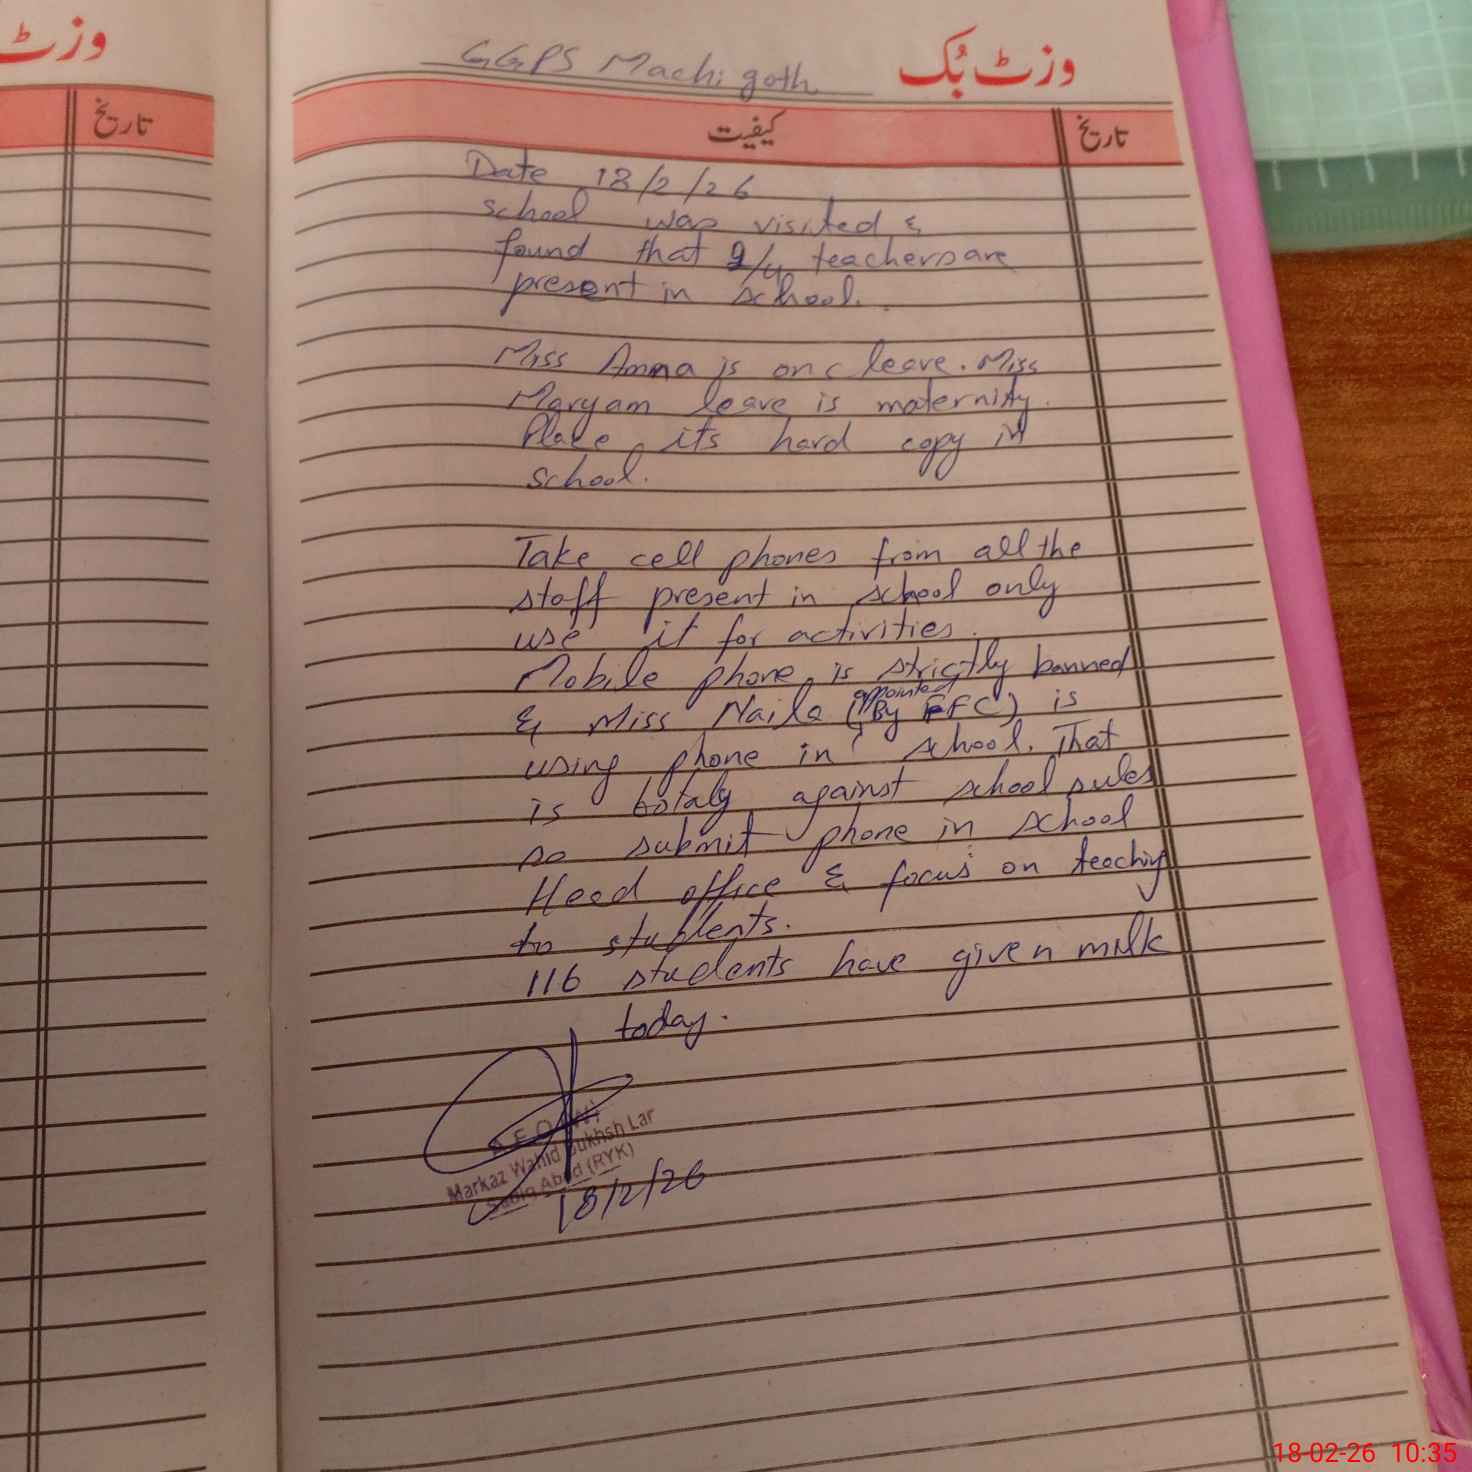 وزٹ
تاریخ
GGPS Machi goth
وزٹ بُک
کیفیت
تاریخ
Date 18/2/26
school was visited &
found that 2/4 teachers are
present in school.
Miss Amna is on c leave. Miss
Maryam leave is maternity.
Place its hard copy in
school.
Take cell phones from all the
staff present in school only
use it for activities.
Mobile phone is strictly banned
& Miss Naila (appointed By FFC) is
using phone in school. That
is totaly against school rules
so submit phone in school
Head office & focus on teaching
to students.
116 students have given milk
today.
Markaz Wahid Bukhsh Lar
Sadiq Abad (RYK)
18/2/26
18-02-26 10:35